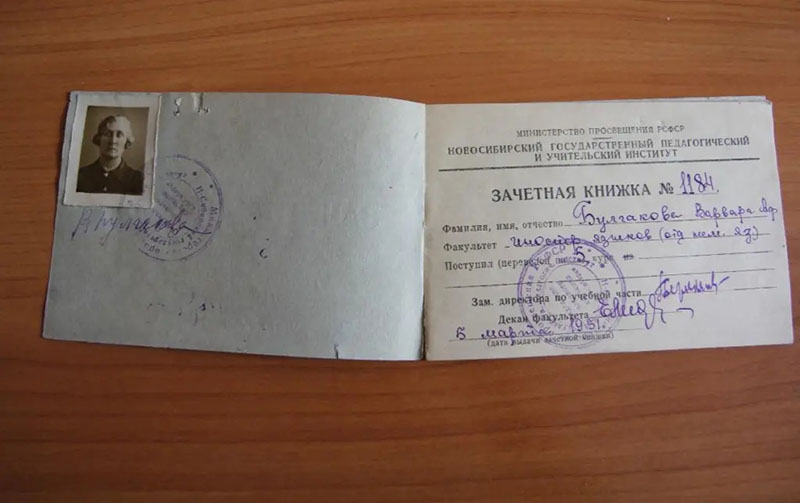 В Булгакова
МИНИСТЕРСТВО ПРОСВЕЩЕНИЯ РСФСР
НОВОСИБИРСКИЙ ГОСУДАРСТВЕННЫЙ ПЕДАГОГИЧЕСКИЙ
И УЧИТЕЛЬСКИЙ ИНСТИТУТ
ЗАЧЕТНАЯ КНИЖКА № 1184.
Фамилия, имя, отчество Булгакова Варвара
Факультет иностр языков (отд нем. яз)
Поступил (переведен) 5 курс из
Зам. директора по учебной части
Декан факультета
5 марта 1951.
(дата выдачи зачетной книжки)